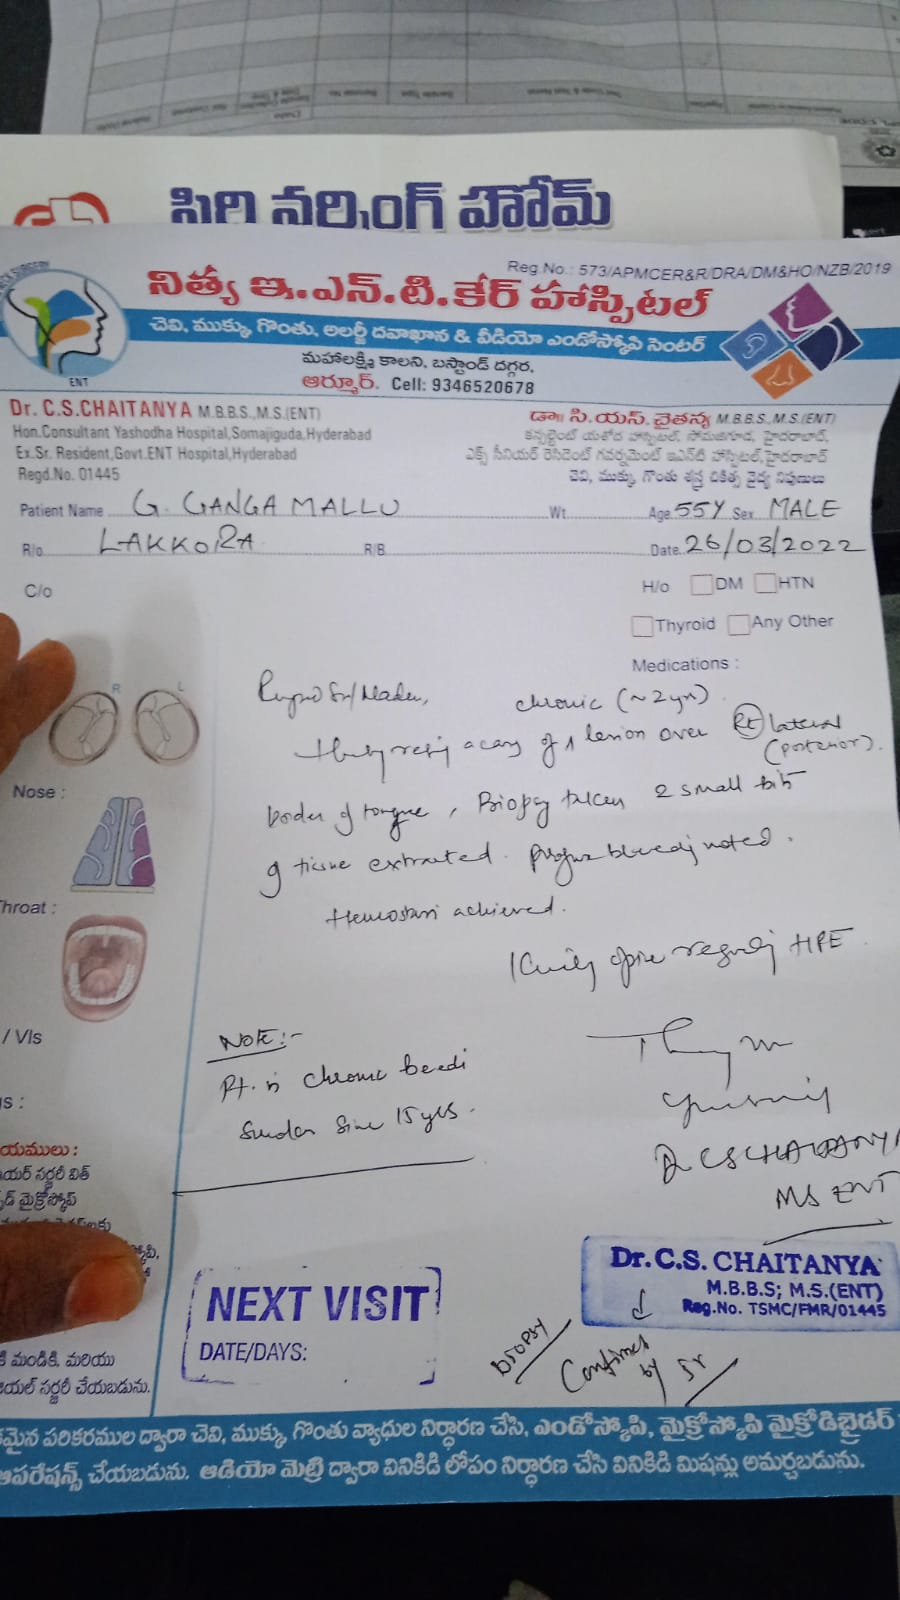 సిరి నర్సింగ్ హోమ్
Reg.No.: 573/APMCER&R/DRA/DM&HO/NZB/2019
నిత్య ఇ.ఎన్.టి.కేర్ హాస్పిటల్
చెవి, ముక్కు, గొంతు, అలర్జీ దవాఖాన & వీడియో ఎండోస్కోపి సెంటర్
మహాలక్ష్మి కాలని, బస్టాండ్ దగ్గర,
ఆర్మూర్. Cell: 9346520678
ENT
Dr. C.S.CHAITANYA M.B.B.S., M.S.(ENT)
Hon.Consultant Yashodha Hospital,Somajiguda,Hyderabad
Ex.Sr. Resident,Govt.ENT Hospital,Hyderabad
Regd.No. 01445
డా॥ సి.యస్. చైతన్య M.B.B.S., M.S.(ENT)
కన్సల్టెంట్ యశోద హాస్పిటల్, సోమాజిగూడ, హైదరాబాద్,
ఎక్స్ సీనియర్ రెసిడెంట్ గవర్నమెంట్ ఇఎన్‌టి హాస్పిటల్, హైదరాబాద్
చెవి, ముక్కు, గొంతు శస్త్ర చికిత్స వైద్య నిపుణులు
Patient Name G. GANGA MALLU Wt Age 55Y Sex MALE
R/o LAKKORA R/B Date 26/03/2022
C/o
H/o DM HTN
Thyroid Any Other
Medications :
R L
Nose :
Throat :
/ Vls
chronic (~2yrs)
a case of lesion over Rt lateral
(posterior).
border of tongue, Biopsy taken 2 small bits
of tissue extracted. bleeding noted.
Hemostasis achieved.
Kindly regarding HPE.
NOTE:-
Pt. is chronic beedi
smoker since 15 yrs.
Dr CS CHAITANYA
MS ENT
Dr.C.S. CHAITANYA
M.B.B.S; M.S.(ENT)
Reg.No. TSMC/FMR/01445
NEXT VISIT
DATE/DAYS:
BIOPSY
by Sr
ద్వారా చెవి, ముక్కు, గొంతు వ్యాధుల నిర్ధారణ చేసి, ఎండోస్కోపి, మైక్రోస్కోపి మైక్రోడిబ్రైడర్
ఆపరేషన్స్ చేయబడును. ఆడియో మెట్రి ద్వారా వినికిడి లోపం నిర్ధారణ చేసి వినికిడి మిషన్లు అమర్చబడును.